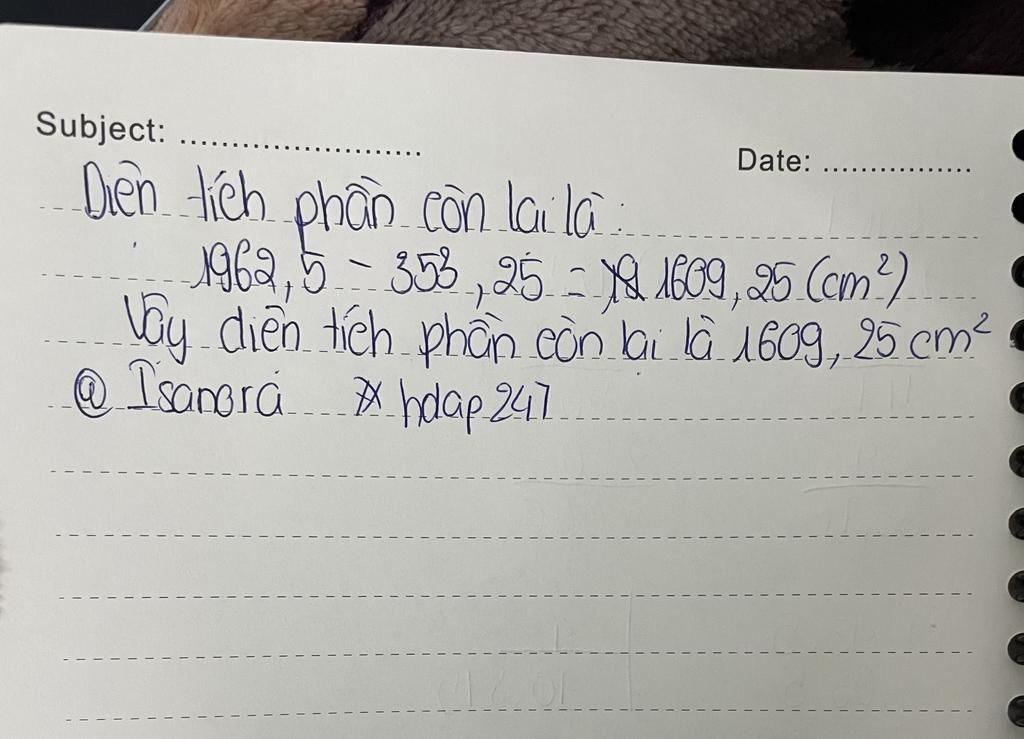 Subject: ........................
Date: ................
Diện tích phần còn lại là:
1962,5 - 353,25 = 1609,25 (cm²)
Vậy diện tích phần còn lại là 1609,25 cm²
@ Isanora * hdap247